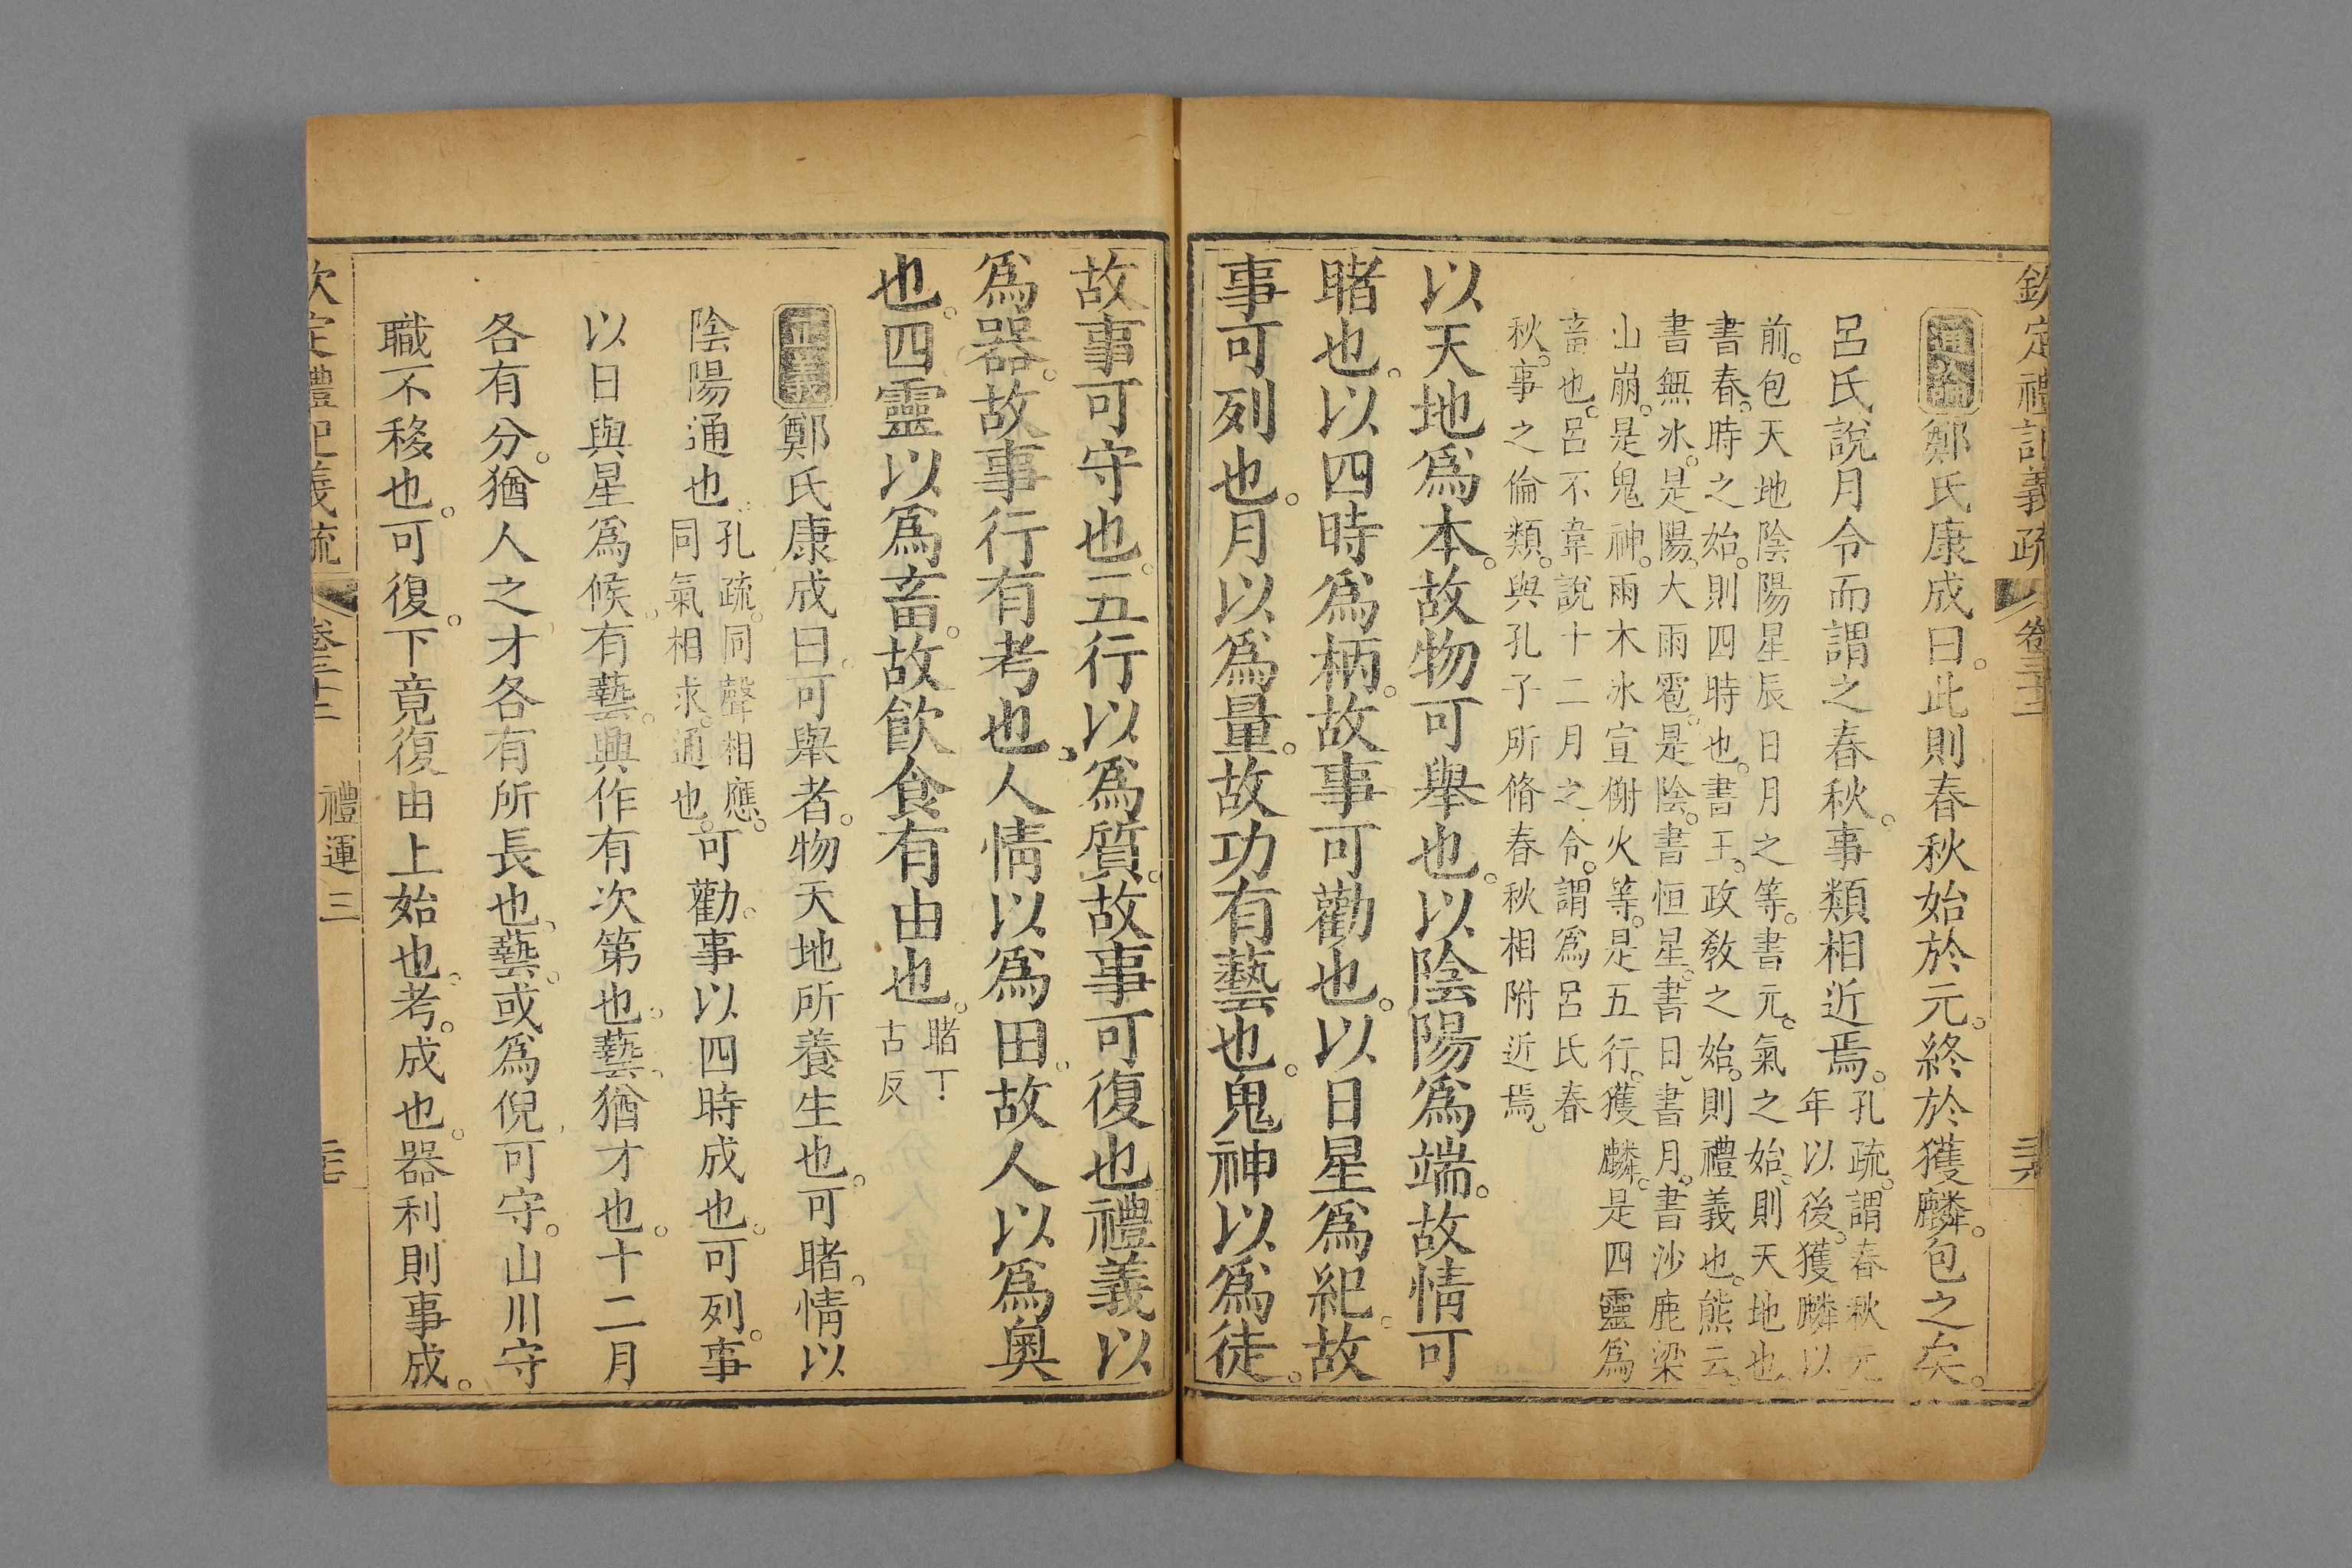 欽定禮記義疏 卷三十一
通論鄭氏康成曰。此則春秋始於元。終於獲麟。包之矣。
呂氏說月令而謂之春秋。事類相近焉。孔疏。謂春秋元
年以後。獲麟以
前。包天地陰陽星辰日月之等。書元。氣之始。則天地也。
書春。時之始。則四時也。書王。政教之始。則禮義也。熊云。
書無冰。是陽。大雨雹。是陰。書恒星。書日。書月。書沙鹿梁
山崩。是鬼神。雨木冰宣榭火等。是五行。獲麟。是四靈為
畜也。呂不韋說十二月之令。謂為呂氏春
秋。事之倫類。與孔子所脩春秋相附近焉。
以天地爲本。故物可舉也。以陰陽爲端。故情可
睹也。以四時爲柄。故事可勸也。以日星爲紀。故
事可列也。月以爲量。故功有藝也。鬼神以爲徒。
故事可守也。五行以爲質。故事可復也禮義以
爲器。故事行有考也。人情以爲田。故人以爲奧
也。四靈以爲畜。故飲食有由也。睹丁
古反
正義鄭氏康成曰。可舉者。物天地所養生也。可睹。情以
陰陽通也。孔疏。同聲相應。
同氣相求。通也。可勸。事以四時成也。可列。事
以日與星爲候。有藝。興作有次第也。藝。猶才也。十二月
各有分。猶人之才各有所長也。藝。或爲倪。可守。山川守
職不移也。可復。下竟復由上始也。考。成也。器利則事成。
欽定禮記義疏 禮運三